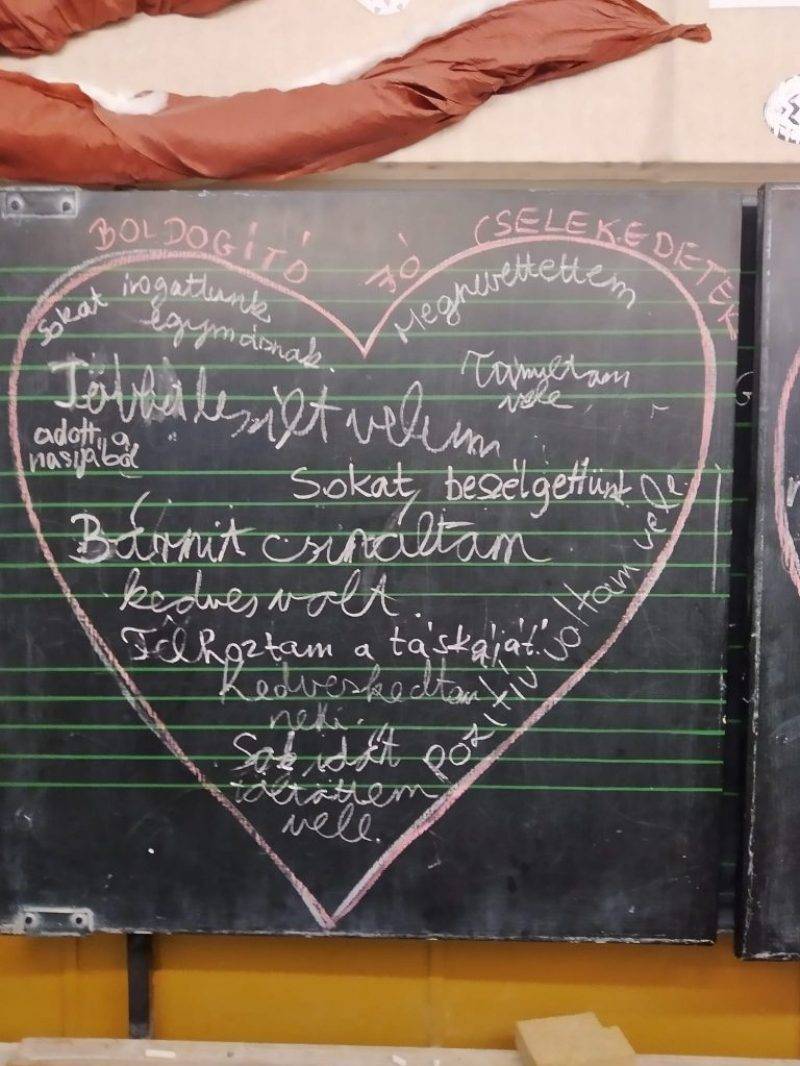 BOLDOGÍTÓ JÓ CSELEKEDETEK
Sokat irogattunk
egymásnak.
Megnevettettem
Tanultam
vele
velem
adott a
nasijából
Sokat beszélgettünk
Bármit csináltam
kedves volt.
Felhoztam a táskáját.
Kedveskedtem
neki.
pozitív voltam vele.
Sok időt
töltöttem
vele.